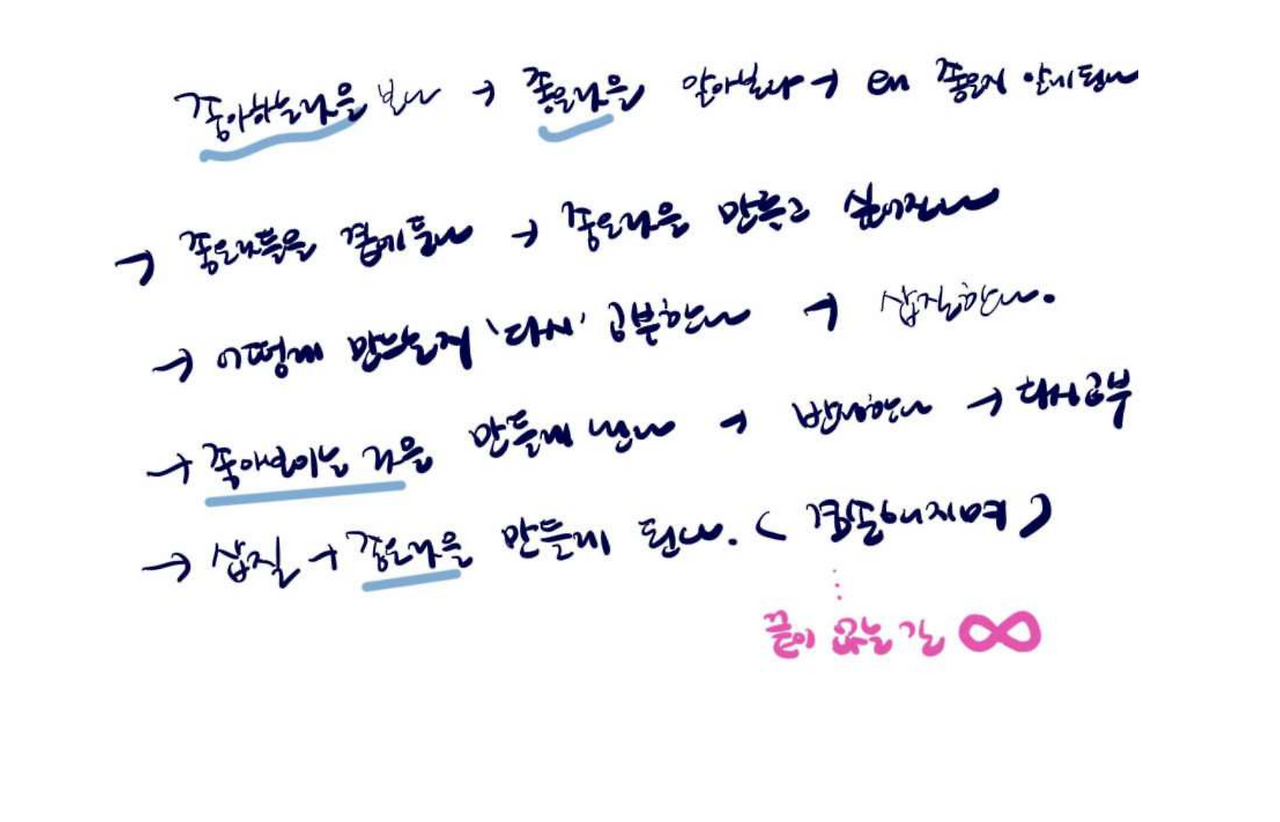 좋아하는것을 본다 → 좋은것을 알아본다 → 왜 좋은지 알게된다
→ 좋은것들을 곁에둔다 → 좋은것을 만들고 싶어진다
→ 어떻게 만드는지 '다시' 공부한다 → 삽질한다.
→ 좋아보이는 것을 만들게 된다 → 반성한다 → 다시공부
→ 삽질 → 좋은것을 만들게 된다. (겸손해지며)
끝이 없는 길 ∞